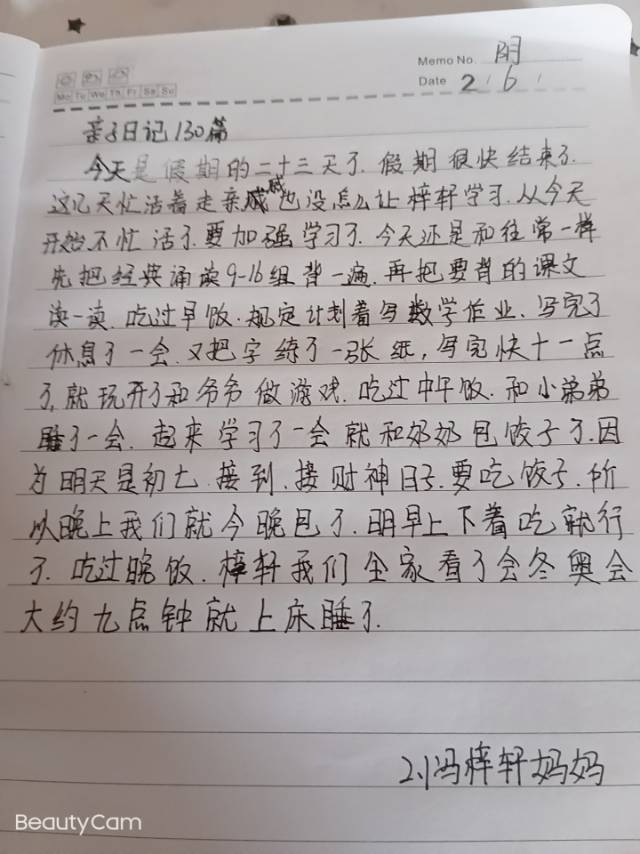 Memo No. 阴
Mo Tu We Th Fr Sa Su
Date 2 / 6 /
亲子日记130篇
今天是假期的二十三天了.假期很快结束了.
这几天忙活着走亲戚也没怎么让梓轩学习.从今天
开始不忙活了.要加强学习了.今天还是和往常一样
先把经典诵读9-16组背一遍.再把要背的课文
读一读.吃过早饭.规定计划着写数学作业.写完了
休息了一会.又把字练了一张纸,写完快十一点
了,就玩开了和爷爷做游戏.吃过中午饭.和小弟弟
睡了一会.起来学习了一会就和奶奶包饺子了.因
为明天是初七.接到.接财神日子.要吃饺子.所
以晚上我们就今晚包了.明早上下着吃就行
了.吃过晚饭.梓轩我们全家看了会冬奥会
大约九点钟就上床睡了.
21冯梓轩妈妈
BeautyCam